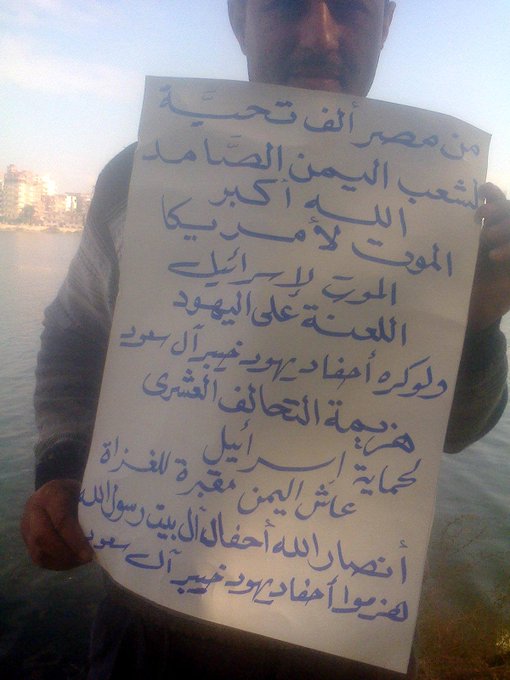 من مصر ألف تحيَّة
لشعب اليمن الصَّامد
الله أكبر
الموت لأمريكا
الموت لإسرائيل
اللعنة على اليهود
ولوكره أحفاد يهود خيبر آل سعود
هزيمة التحالف العشرى
لحماية إسرائيل
عاش اليمن مقبرة للغزاة
أنصار الله أحفال آل بيت رسول الله
هزموا أحفاد يهود خيبر آل سعود